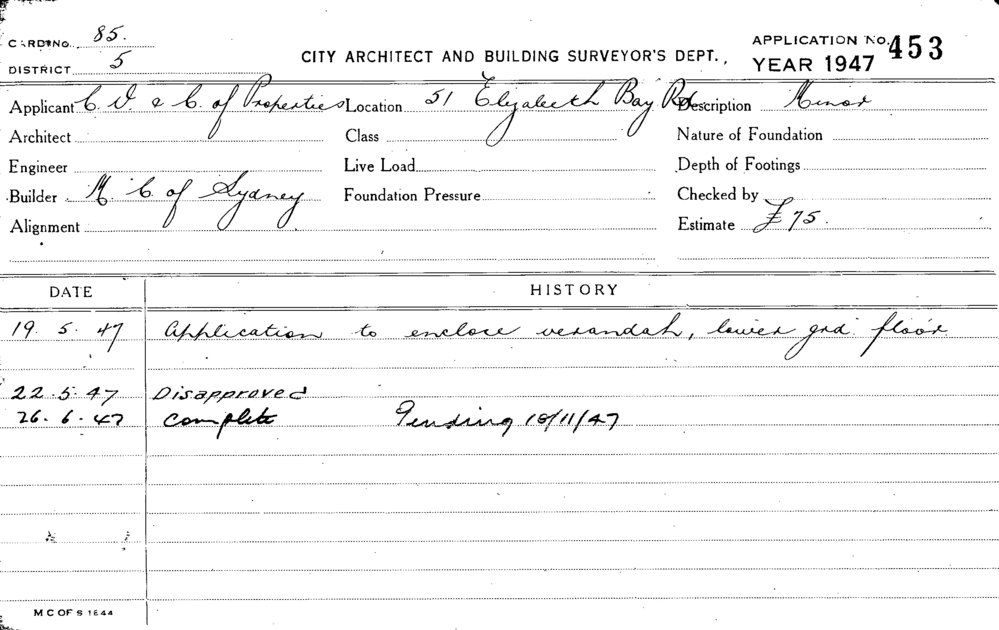 CARD NO. 85.
DISTRICT 5
CITY ARCHITECT AND BUILDING SURVEYOR'S DEPT.,
APPLICATION NO. 453
YEAR 1947
Applicant C. V. & C. of Properties Location 51 Elizabeth Bay Rd. Description Minor
Architect Class Nature of Foundation
Engineer Live Load Depth of Footings
Builder M. C. of Sydney Foundation Pressure Checked by
Alignment Estimate £75.
DATE HISTORY
19. 5. 47 Application to enclose verandah, lower grd. floor
22.5.47 Disapproved
26.6.47 Complete Pending 18/11/47
M C OF S 1844